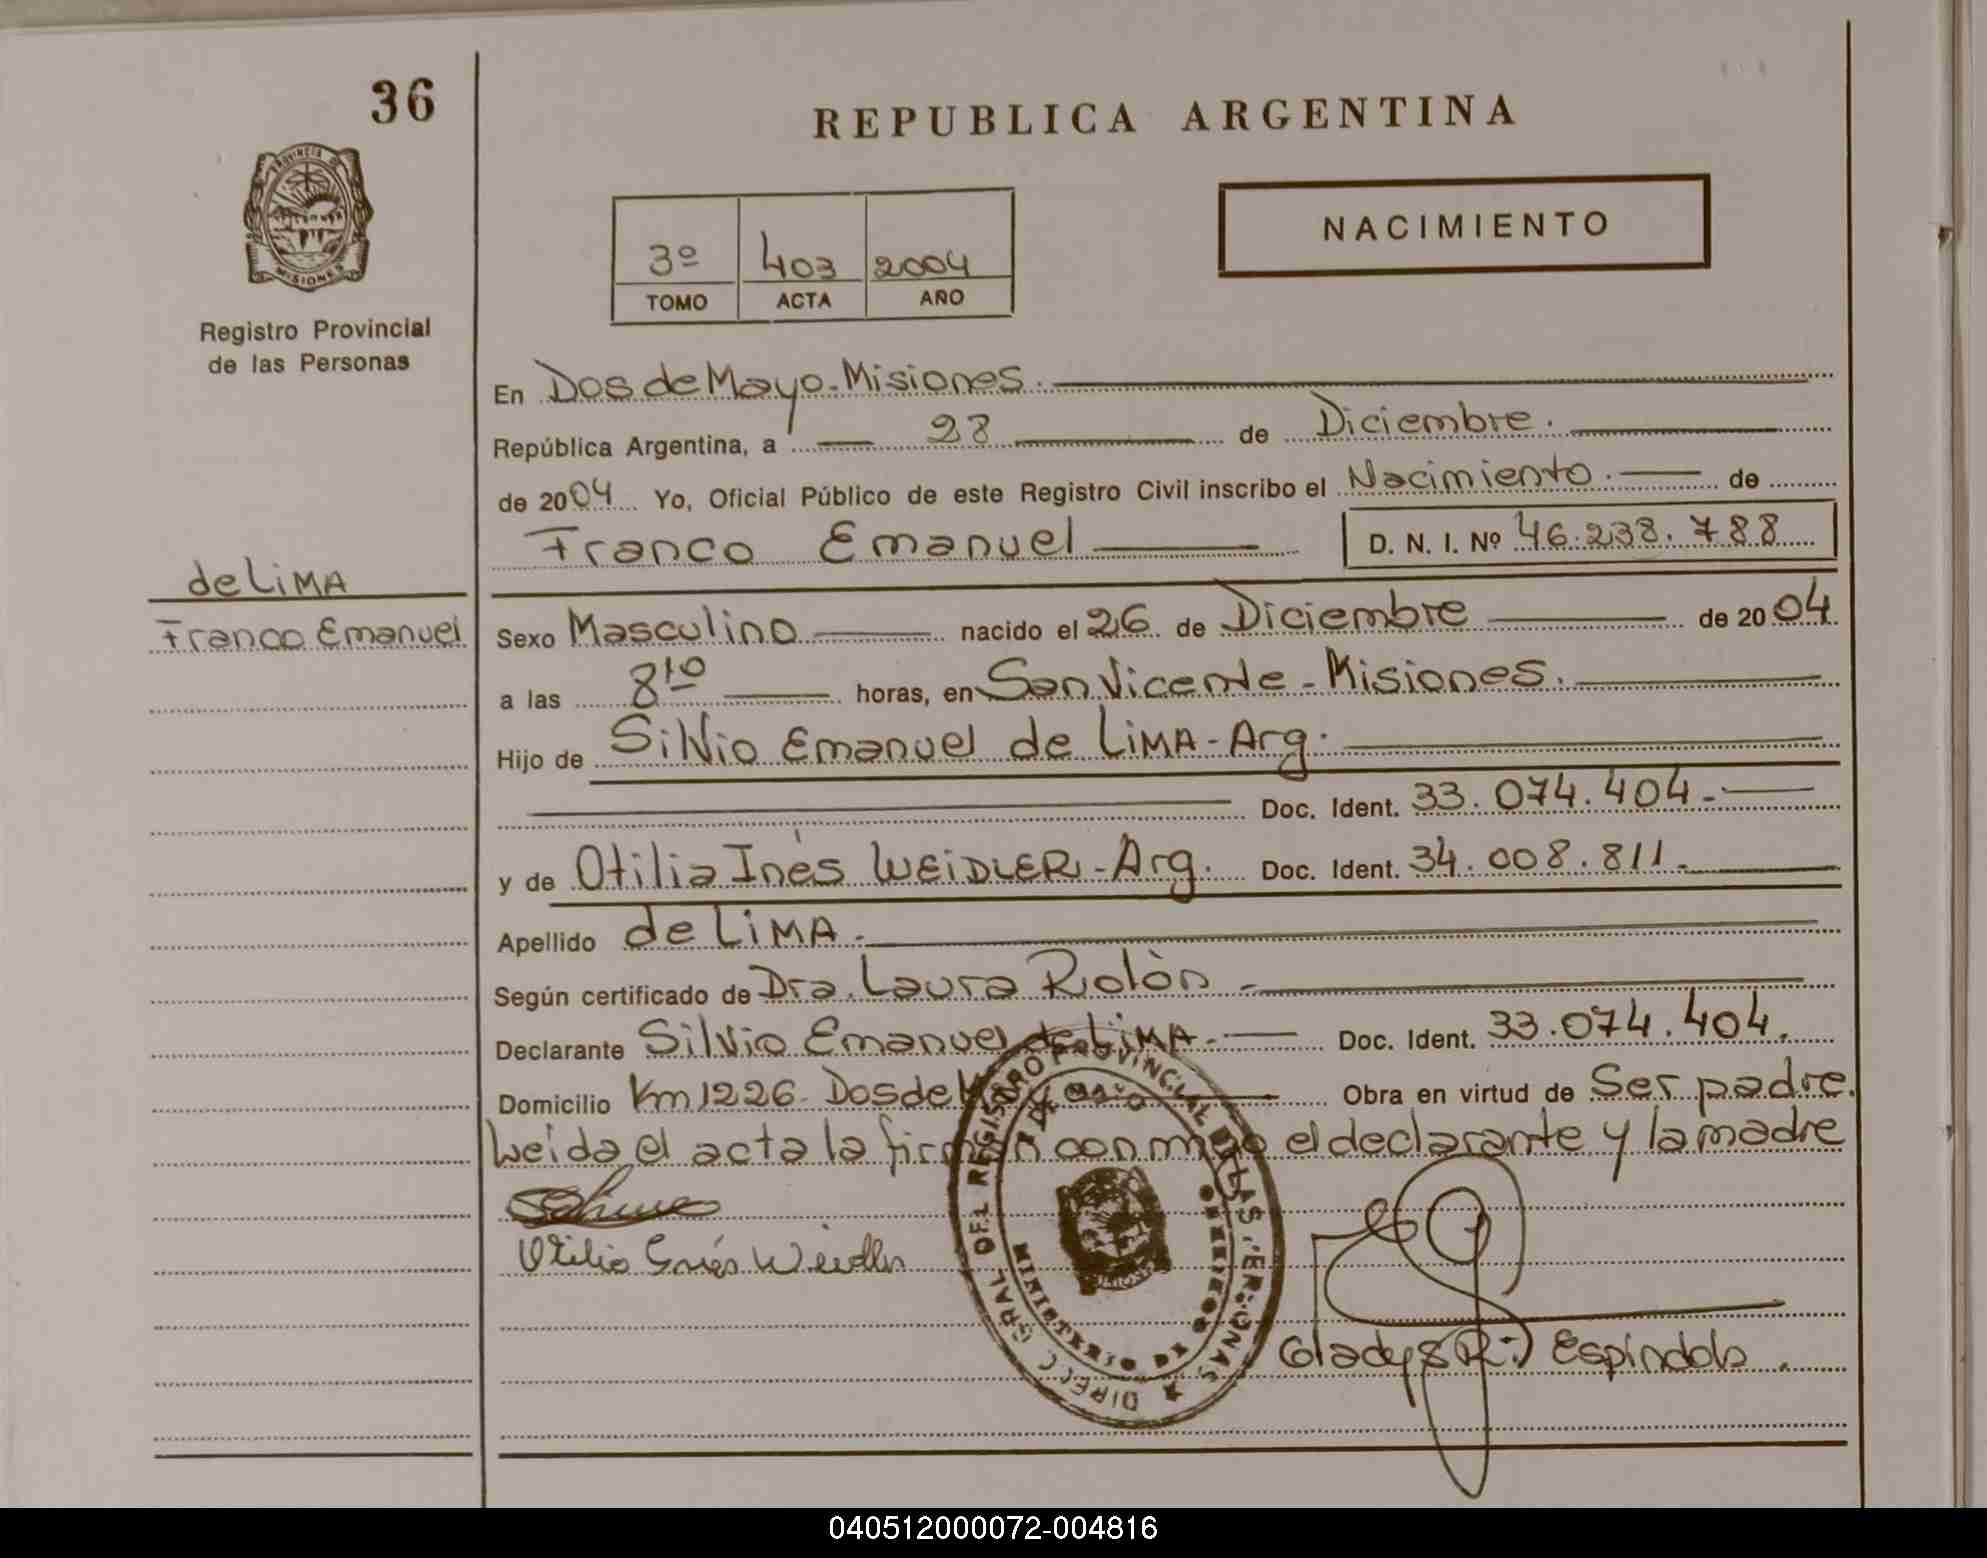 36
REPUBLICA ARGENTINA
NACIMIENTO
3º 403 2004
TOMO ACTA AÑO
PROVINCIA DE
MISIONES
Registro Provincial
de las Personas
En Dos de Mayo-Misiones.
República Argentina, a 28 de Diciembre.
de 2004 Yo, Oficial Público de este Registro Civil inscribo el Nacimiento. de
Franco Emanuel D. N. I. Nº 46.238.788
de LiMA
Franco Emanuel
Sexo Masculino nacido el 26 de Diciembre de 2004
a las 8¹⁰ horas, en San Vicente-Misiones.
Hijo de Silvio Emanuel de LiMA-Arg.
Doc. Ident. 33.074.404.-
y de Otilia Inés WEiDLER-Arg. Doc. Ident. 34.008.811.-
Apellido de LiMA.-
Según certificado de Dra. Laura Rolòn.-
Declarante Silvio Emanuel de LiMA.- Doc. Ident. 33.074.404.
Domicilio Km 1226- Dos de Mayo Obra en virtud de Ser padre.
Leida el acta la firman con migo el declarante y la madre
Otilia Inés Weidler
DIREC. GRAL DEL REGISTRO PROVINCIAL DE LAS PERSONAS
MINISTERIO DE GOBIERNO
Gladys R. Espíndola.
040512000072-004816